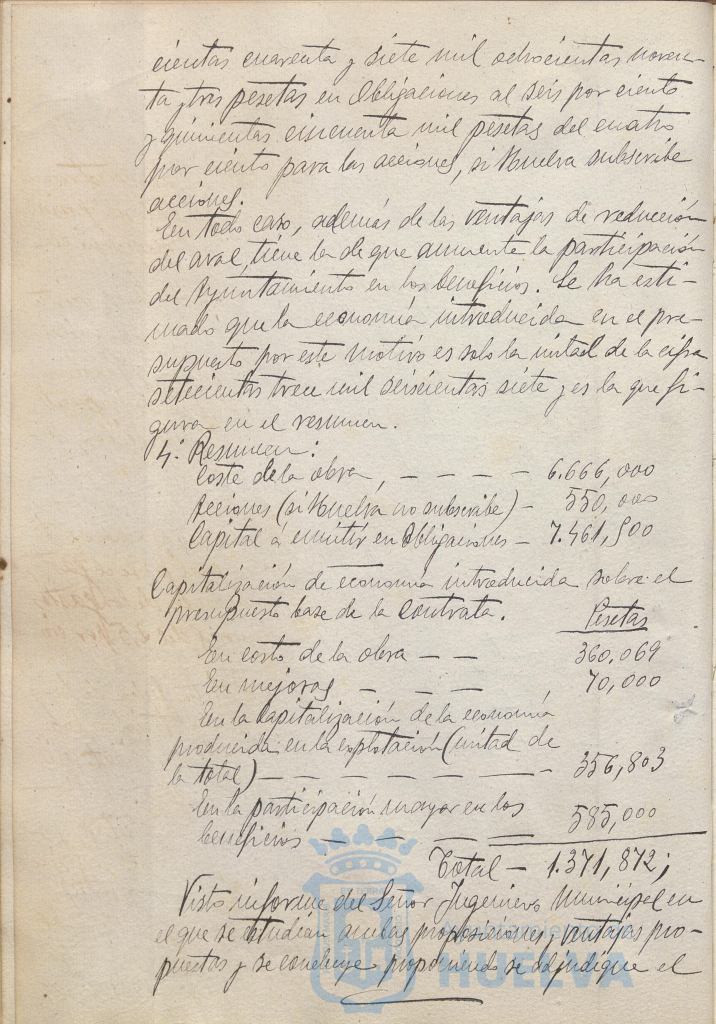 cientas cuarenta y siete mil ochocientas noven-
ta y tres pesetas en Obligaciones al seis por ciento
y quinientas cincuenta mil pesetas del cuatro
por ciento para las acciones, si Huelva subscribe
acciones.
En todo caso, además de las ventajas de reducción
del aval, tiene la de que aumente la participación
del Ayuntamiento en los beneficios. Se ha esti-
mado que la economía introducida en el pre-
supuesto por este motivo es solo la mitad de la cifra
setecientas trece mil seiscientas siete y es la que fi-
gura en el resumen.
4.º Resumen:
Coste de la obra, — — — — 6.666,000
Acciones (si Huelva no subscribe) — 550,000
Capital á emitir en Obligaciones — 7.461,500
Capitalización de economía introducida sobre el
presupuesto base de la contrata. Pesetas
En costo de la obra — — 360.069
En mejoras — — — 70,000
En la capitalización de la economía
producida en la explotación (mitad de
la total) — — — — — — 356,803
En la participación mayor en los
beneficios — — — — 585,000
Total — 1.371,872;
Visto informe del Señor Ingeniero Municipal en
el que se estudian ambas proposiciones y ventajas pro-
puestas y se concluye proponiendo se adjudique el
HUELVA